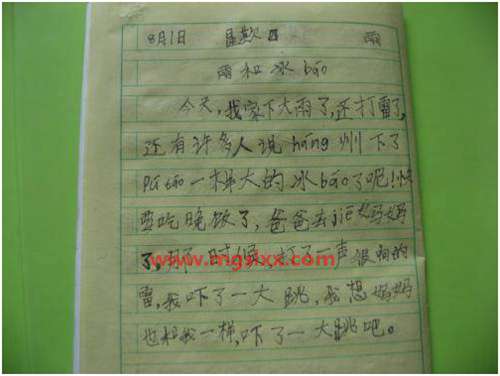 8月1日 星期四 雨
雨和冰báo
今天,我家下大雨了,还打雷了,
还有许多人说háng州下了
Pú táo一样大的冰báo了呢!快
要吃晚饭了,爸爸去jiē妈妈
了,那时候打了一声很响的
雷,我吓了一大跳,我想妈妈
也和我一样,吓了一大跳吧。
www.mgslxx.com